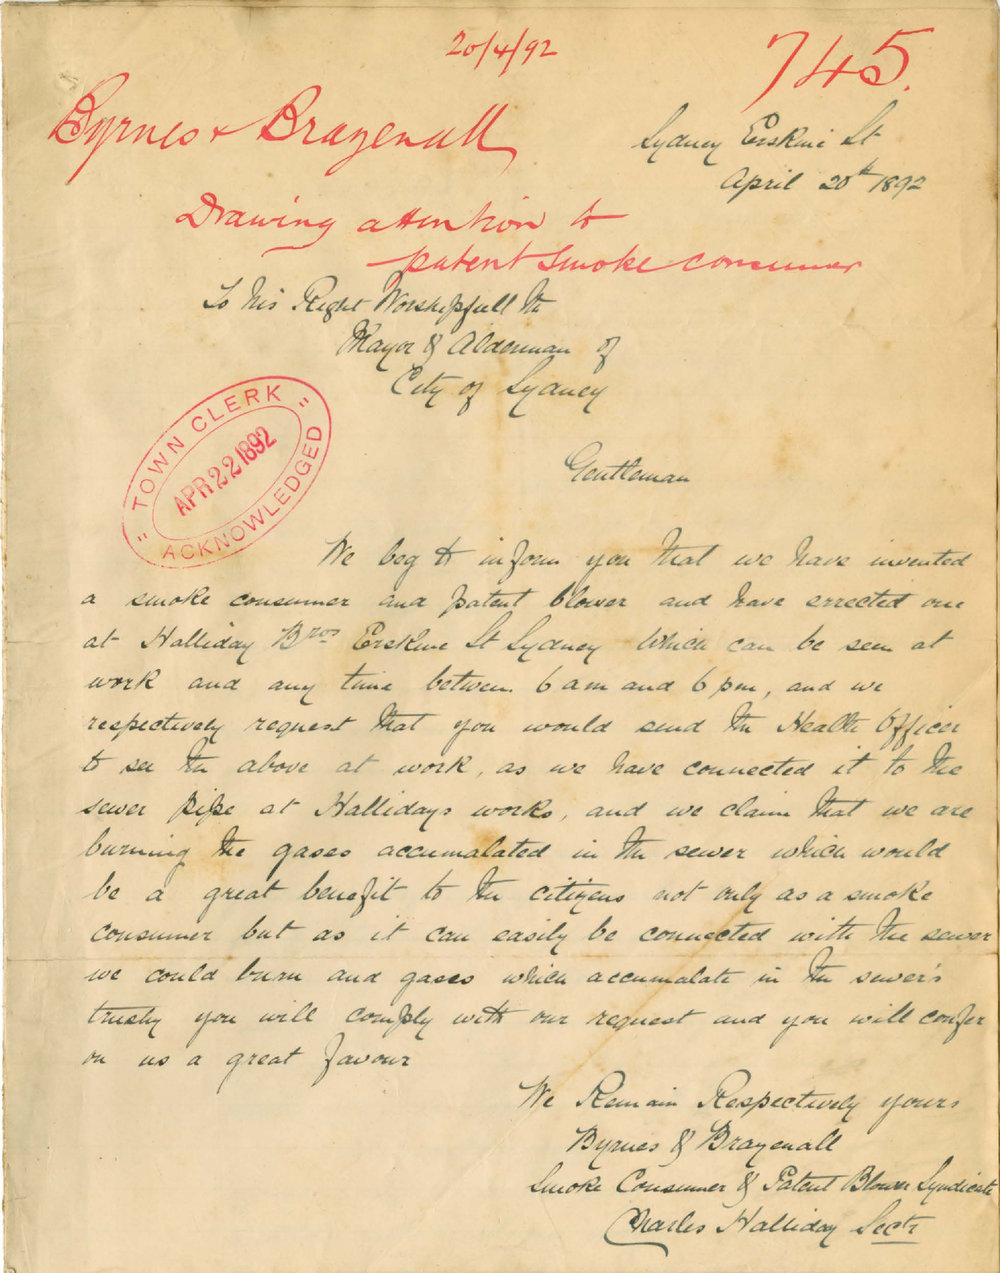 20/4/92
745.
Byrnes & Brazenall
Sydney Erskine St
April 20th 1892
Drawing attention to
patent smoke consumer
To his Right Worshipfull the
Mayor & Alderman of
City of Sydney
"TOWN CLERK"
APR 22 1892
ACKNOWLEDGED
Gentleman
We beg to inform you that we have invented
a smoke consumer and patent blower and have errected one
at Halliday Bros Erskine St Sydney which can be seen at
work and any time between 6 am and 6 pm, and we
respectively request that you would send the Health Officer
to see the above at work, as we have connected it to the
sewer pipe at Hallidays works, and we claim that we are
burning the gases accumalated in the sewer which would
be a great benefit to the citizens not only as a smoke
consumer but as it can easily be connected with the sewer
we could burn and gases which accumalate in the sewer's
trusty you will comply with our request and you will confer
on us a great favour
We Remain Respectively yours
Byrnes & Brazenall
Smoke Consumer & Patent Blower Syndicate
Charles Halliday Sectr